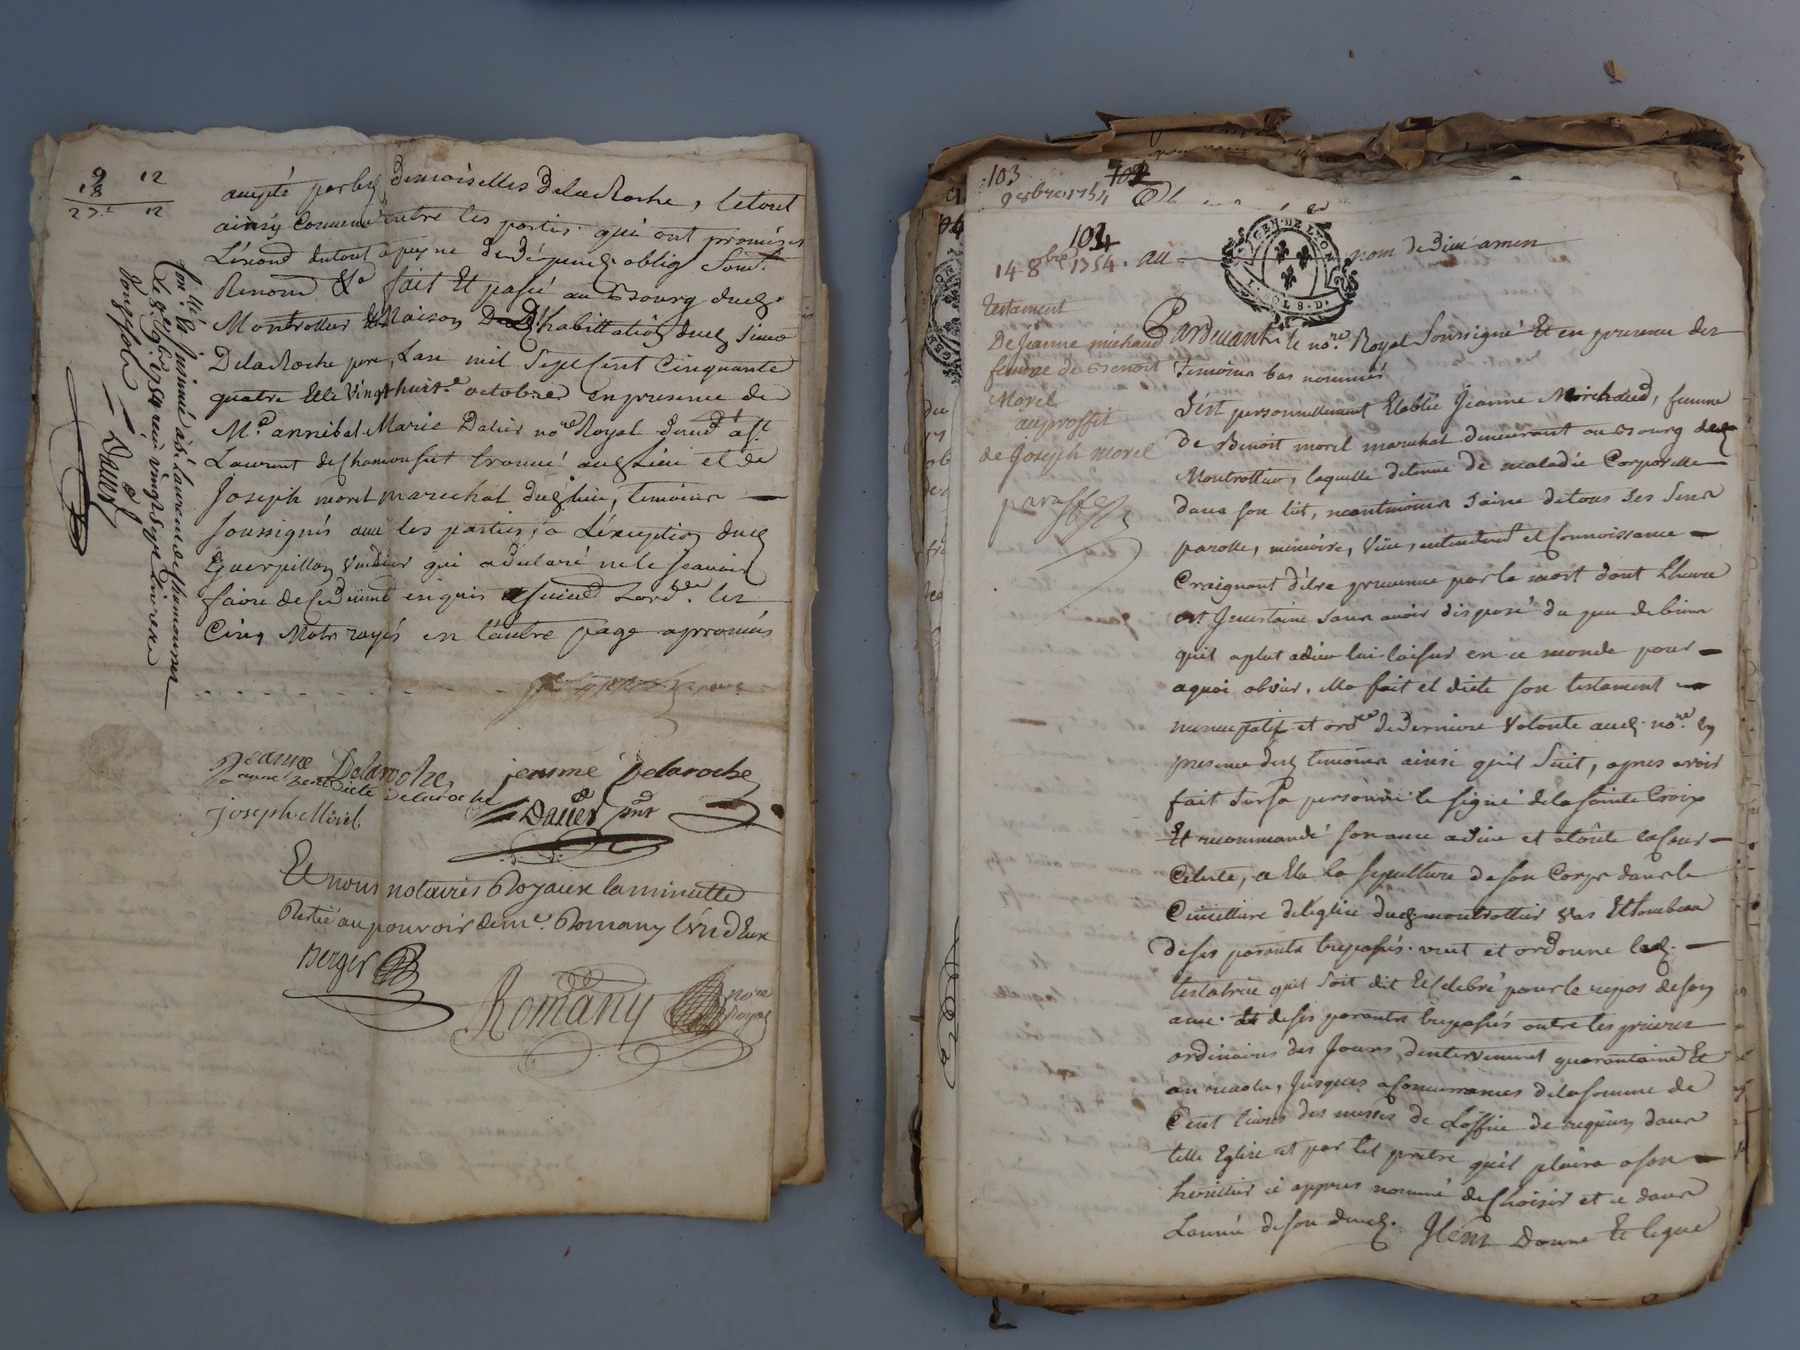 9 12
18
27ᵗ 12
accepté par les Demoiselles Delaroche, letout
ainsy Convenu entre les parties qui ont promis
Renonc &ᵃ fait Et passé au Bourg dud.
Montrottier Maison D'habittation dud. Sieur
Delaroche pere, Lan mil Sept Cent Cinquante
quatre Et le Vingthuitᵉ octobre en presence de
Mᵉ annibal Marie Dauer noʳᵉ Royal
Laurent de Chamousset trouvé aud. Lieu et de
Joseph morel marechal dud. lieu, temoins
soussignés avec les parties, a L'exception dud.
Guerpillon qui a declaré ne le scavoir
faire de ce duement enquis
Cinq Mots rayés en l'autre page aprouvés
Conᵗˡᵉ à Sᵗ Laurent de Chamousset
Dauer
Jeanne Delaroche jemme Delaroche
Benedicte Delaroche
joseph Morel Dauer pnt
Et nous notaires Royaux la minutte
Restée au pouvoir de mᵉ Romany L'un d'Eux
Berger
Romany noʳᵉ Royal
103 102
9 8bre 1754
102
14 8bre 1754. au nom de Dieu amen
GEN. DE LYON
2. SOLS 8. D.
testament
De Jeanne michaud
femme de Benoit
Morel
au proffit
de Joseph morel
Pardevant le noʳᵉ Royal Soussigné Et en presence des
Temoins bas nommés
S'est personnellement Etablie Jeanne Morichaud, femme
De Benoit morel marechal demeurant au Bourg de
Montrottier, laquelle detenue de maladie Corporelle
dans son lit, neantmoins Saine de tous ses Sens
parolle, memoire, Vüe, entendemᵗ et Connoissance
Craignant d'etre prevenue par la mort dont L'heure
est Incertaine sans avoir disposé du peu de biens
quil a plut a dieu lui laisser en ce monde pour
aquoi obvier, Ela fait et dicté son testament
nuncupatif et ordʳᵉ de Derniere Volonté aud. noʳᵉ En
presence desd. temoins ainsi quil Suit, apres avoir
fait sur sa personne le signe de la sainte Croix
Et recommandé son ame a Dieu et a toute la Cour
Celeste, a Elu la sepulture de son Corps dans le
Cimettiere de l'eglise dud. montrottier Vas Et tombeau
de ses parents trepassés. veut et ordonne lad.
testatrice quil soit dit Et Celebré pour le repos de son
ame et de ses parents trepassés outre les prieres
ordinaires des Jours d'enterrement quarantaine Et
an revolu, Jusques a Concurrances de la somme de
Cent livres des messes de L'office de requiem dans
telle Eglise et par tel pretre qu'il plaira a son
heritier ci appres nommé de Choisir et ce dans
L'année de son deced. Item Donne Et legue